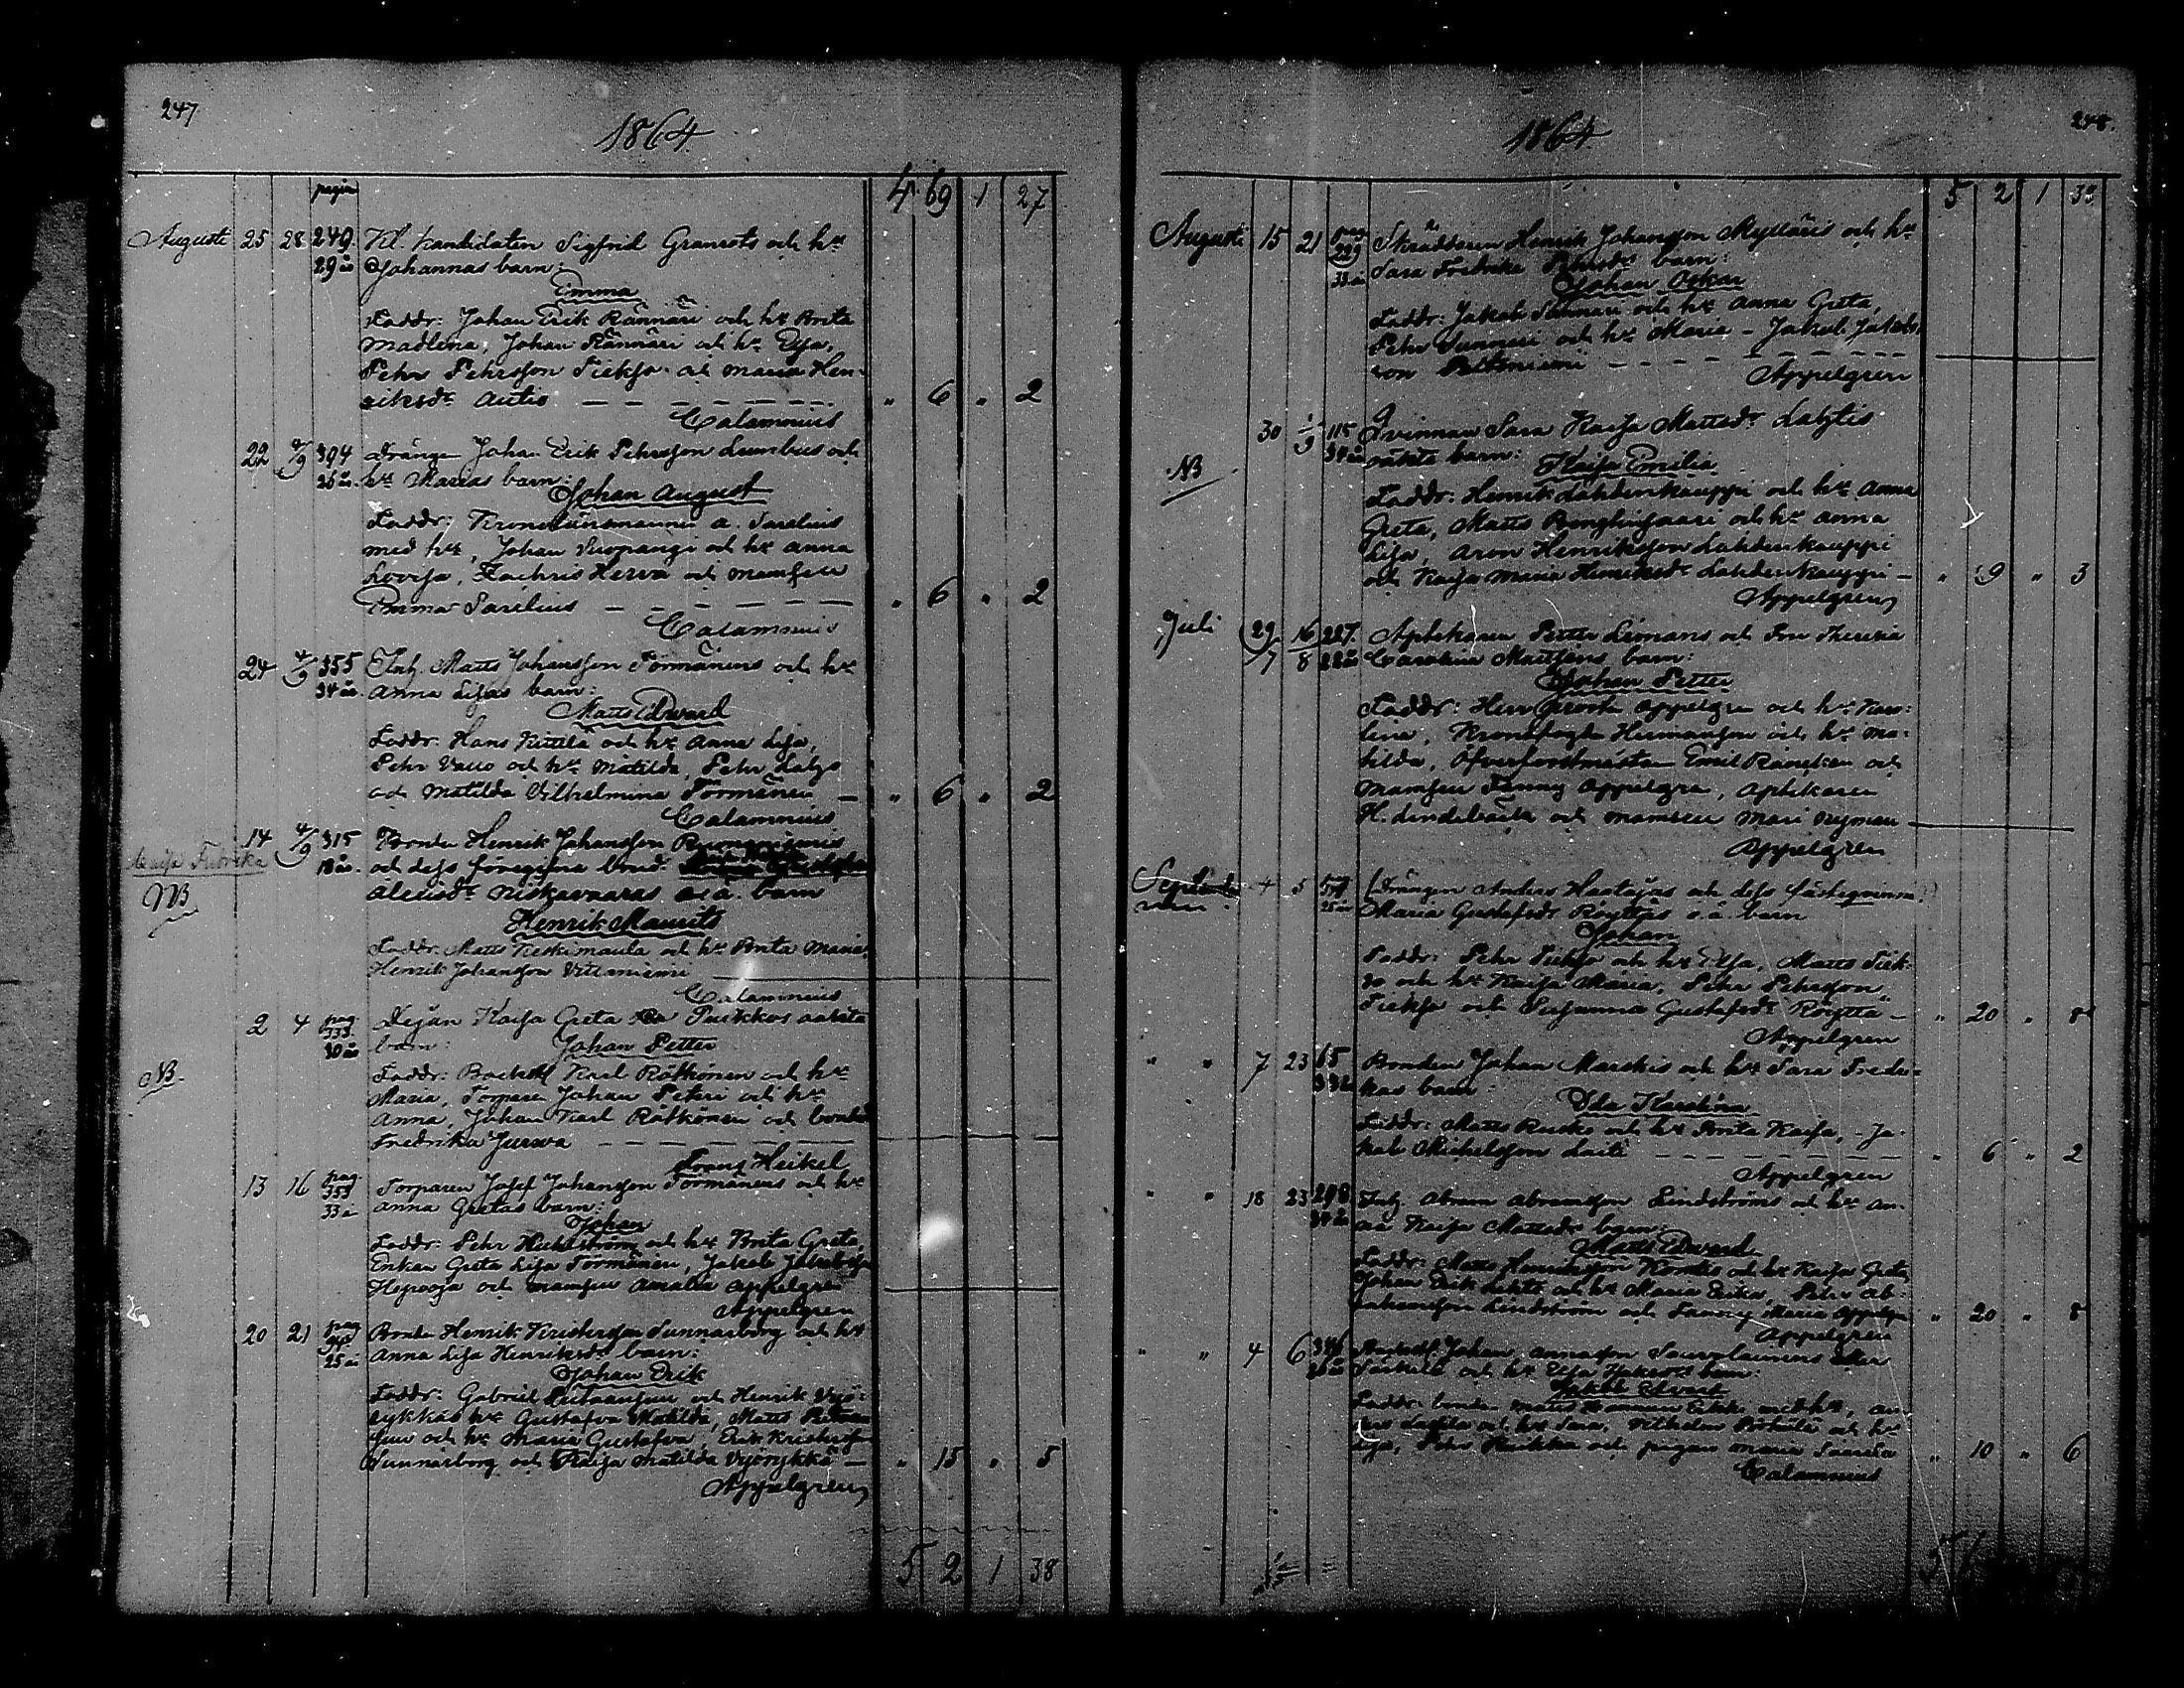 247
1864
pagin
4 69 1 27
Augusti 25 28 249. Kl. Kandidaten Sigfrid Granrots och hu
29 år Johannas barn:
Emma
Faddr: Johan Erik Rännäri och hu Brita
Madlena, Johan Rännäri och hu Elsa,
Pehr Pehrsson Tiekso och Maria Hen-
riksdr Autio " 6 " 2
Calamnius
22 4/9 394 Drängen Johan Erik Pehrsson Lumbus och
26 år. hu Marias barn:
Johan August
Faddr: Kronolänsmannen a. Sarelius
med hu, Johan Suopangi och hu Anna
Lovisa, Zachris Herva och Mamsell
Emma Sarelius " 6 " 2
Calamnius
24 4/9 355 Inh. Matts Johansson Törmänens och hu
34 år. Anna Lisas barn:
Matts Edvard
Faddr: Hans Kittilä och hu Anna Lisa,
Pehr Vallo och hu Matilda, Pehr Lalzo
och Matilda Vilhelmina Törmänen " 6 " 2
Calamnius
14 4/9 315 Bonden Henrik Johansson
Kaisa Fredrika 18 år. och dess föregifna brud
NB Alexisdr Niskavaaras o. ä. barn
Henrik Maurits
Faddr: Matts Keskimaula och hu Brita Maria,
Henrik Johansson Viteniemi
Calamnius
2 4 pag. 333 Dejan Kaisa Greta Puikkos oäkta
30 år barn: Johan Petter
NB. Faddr: Backstl Karl Rötkönen och hu
Maria, Torparen Johan Peteri och hu
Anna, Johan Karl Rötkönen och bondd
Fredrika Jurva
Frans Heikel
13 16 pag. 353 Torparen Josef Johansson Törmänens och hu
33 år Anna Gretas barn:
Johan
Faddr: Pehr och hu Brita Greta
Enkan Greta Lisa Törmänen, Jakob Jakobsson
Hepooja och mamsell Amalia Appelgren
Appelgren
20 21 pag Bonden Henrik Kristersson Sunnarborg och hu
25 år Anna Lisa Henriksdr barn:
Johan Erik
Faddr: Gabriel och Henrik Vyö-
rykkäs hu Gustafva Matilda, Matts
och hu Maria Gustafva, Erik Kristersson
Sunnarborg och Kaisa Matilda Vyörykkä " 15 " 5
Appelgren
5 2 1 38
248.
1864
5 2 1 38
Augusti 15 21 pag 229 Skräddaren Henrik Johansson Mylläris och hu
33 år Sara Fredrika Pehrsdr barn:
Johan Oskar
Faddr: Jakob och hu Anna Greta,
Pehr och hu Maria - Jakob Jakobs
son
Appelgren
30 1/9 115 Qvinnan Sara Kaisa Mattsdr Lahtis
NB 34 år oäkta barn: Kaisa Emilia
Faddr: Henrik Lahdenkauppi och hu Anna
Greta, Matts och hu Anna
Lisa, Aron Henriksson Lahdenkauppi
och Kaisa Maria Henriksdr Lahdenkauppi " 9 " 3
Appelgren
Juli 29/7 16/8 227. Aptekaren Petter Limans och Fru Theresia
22 år Carolina Mattsens barn:
Johan Petter
Faddr: Herr Prosten Appelgren och hu Karo-
lina, Kronofogden Hermanson och hu Ma-
tilda, Öfverforstmästaren Emil och
Mamsell Fanny Appelgren, Aptekaren
H. Lindebäck och mamsell Mari Nyman
Appelgren
Septem- 4 5 Drängen Anders Haatajas och dess fästeqvinna
25 år Maria Gustafsdr Röyttäs o. ä. barn
Johan
Faddr: Pehr Tiekso och hu Elsa, Matts Tiek-
so och hu Kaisa Maria, Pehr Pehrsson
Tiekso och Susanna Gustafsdr Röyttä " 20 " 8
Appelgren
" " 7 23 65 Bonden Johan Marskis och hu Sara Fredri-
kas barn
Ida Karolina
Faddr: Matts Rusko och hu Brita Kaisa, Ja-
kob Michelsson Laiti " 6 " 2
Appelgren
" " 18 23 298 Inh. Abram Abramsson Lindströms och hu An-
na Kaisa Mattsdr barn:
Matts Edvard
Faddr: Matts Henriksson och hu Kaisa Greta
Johan Erik Lehto och hu Maria Erika, Pehr Ab-
rahamsson Lindström och Fanny Maria Appelgren " 20 " 8
Appelgren
" " 4 6 346 Johan Annasson eller
26 år och hu Elsa barn:
Jakob Edvard
Faddr: bonden Matts med hu, An-
ders och hu Sara, Vilhelm och hu
Pehr och pigan Maria " 10 " 6
Calamnius